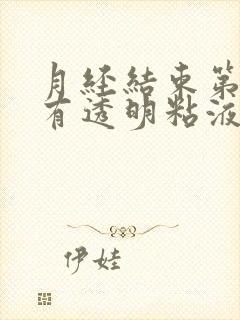 月经结束第
有透明粘液
伊娃